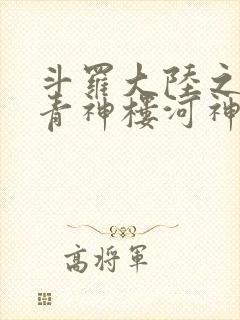 斗羅大陸之
青神樓河神
高將軍